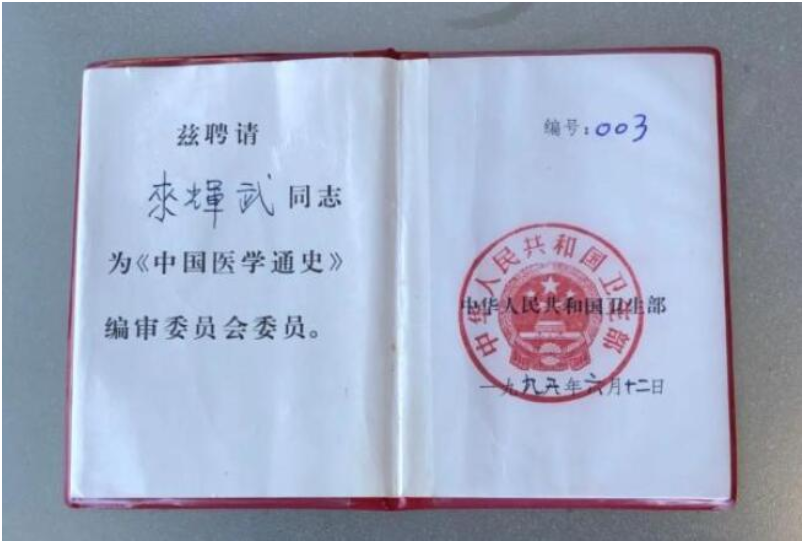 兹聘请
來輝武同志
为《中国医学通史》
编审委员会委员。
编号:003
中华人民共和国卫生部
中华人民共和国卫生部
一九九五年六月十二日